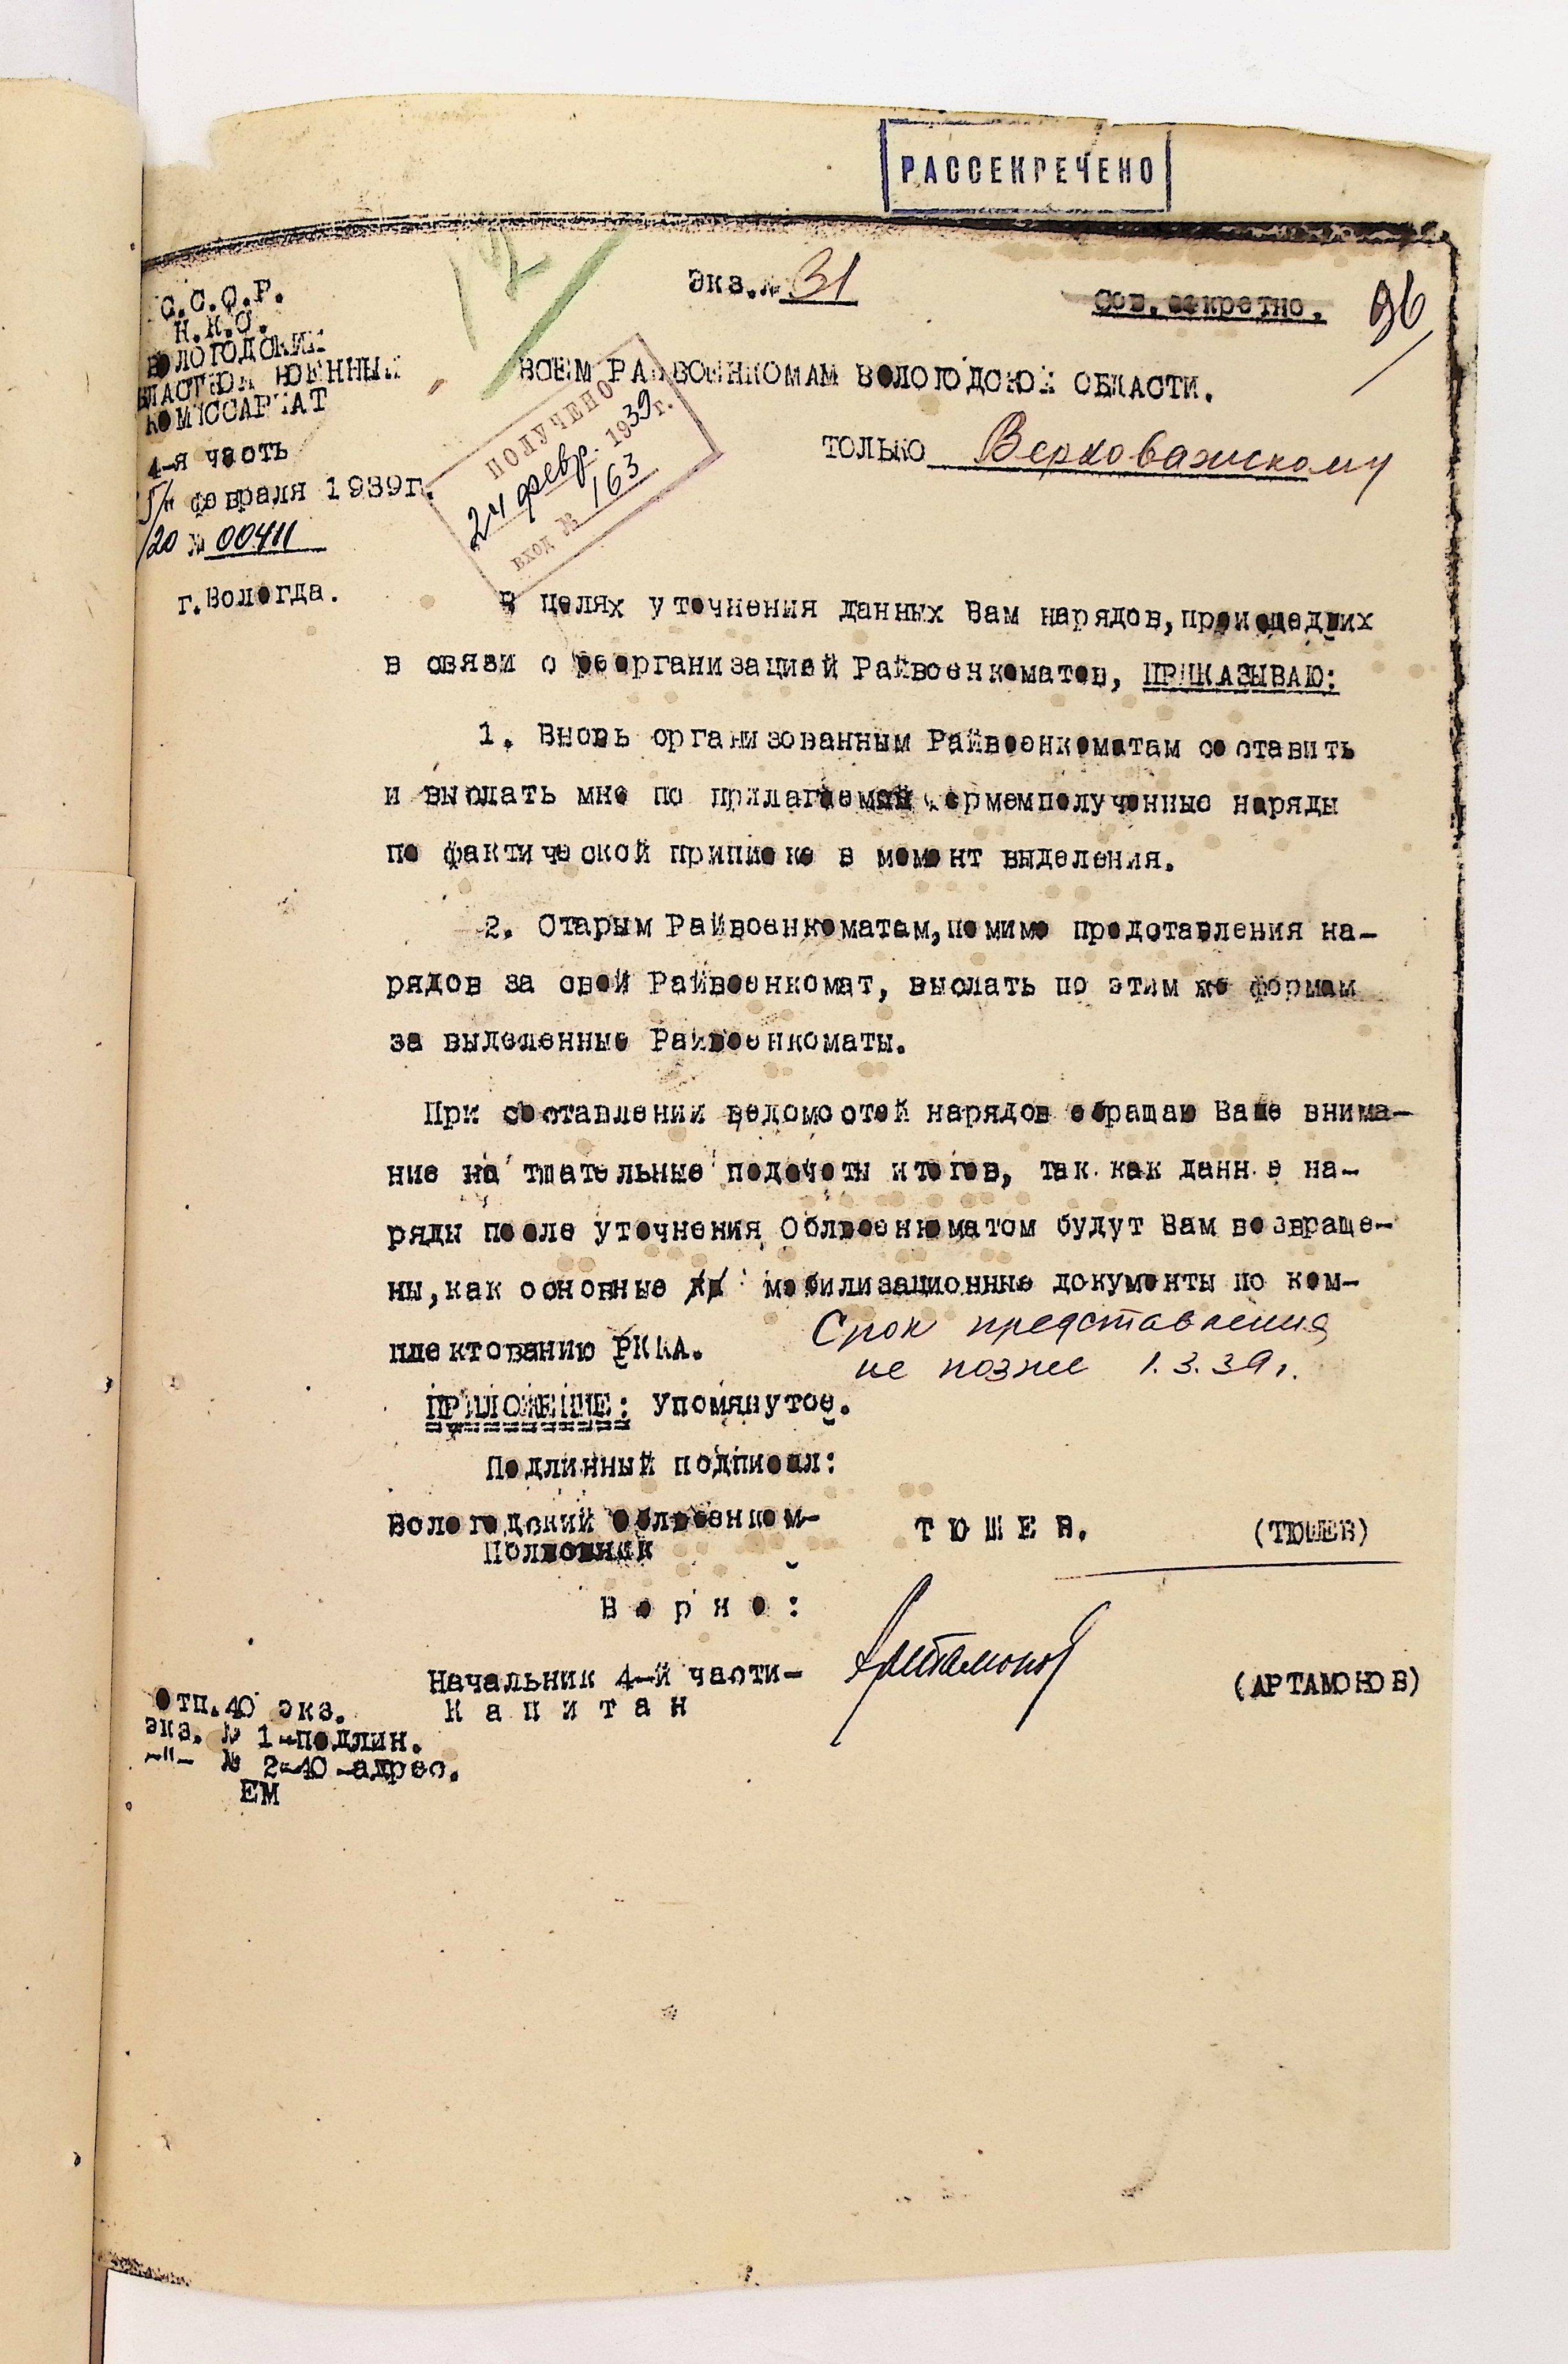 РАССЕКРЕЧЕНО
12
Экз.№ 31
Сов.секретно.
96
С.С.С.Р.
Н.К.О.
ВОЛОГОДСКИЙ
ОБЛАСТНОЙ ВОЕННЫЙ
КОМИССАРИАТ
4-я часть
февраля 1939г.
№ 00411
г.Вологда.
ВСЕМ РАЙВОЕНКОМАМ ВОЛОГОДСКОЙ ОБЛАСТИ.
ТОЛЬКО Верховажскому
ПОЛУЧЕНО
24 февр. 1939 г.
вход № 163
В целях уточнения данных Вам нарядов,происшедших
в связи с реорганизацией Райвоенкоматов, ПРИКАЗЫВАЮ:
1. Вновь организованным Райвоенкоматам составить
и выслать мне по прилагаемой формемполученные наряды
по фактической приписке в момент выделения.
2. Старым Райвоенкоматам,помимо представления на-
рядов за свой Райвоенкомат, выслать по этим же формам
за выделенные Райвоенкоматы.
При составлении ведомостей нарядов обращаю Ваше внима-
ние на тщательные подсчеты итогов, так как данн е на-
ряды после уточнения Облвоенкоматом будут Вам возвраще-
ны,как основные мобилизационные документы по ком-
плектованию РККА.
Срок представления
не позже 1.3.39г.
ПРИЛОЖЕНИЕ: Упомянутое.
Подлинный подписал:
Вологодский Облвоенком-
Полковник
ТЮШЕВ.
(ТЮШЕВ)
Верно:
Начальник 4-й части-
Капитан
Артамонов
(АРТАМОНОВ)
Отп.40 экз.
экз. № 1-подлин.
-"- № 2-40-адрес.
ЕМ